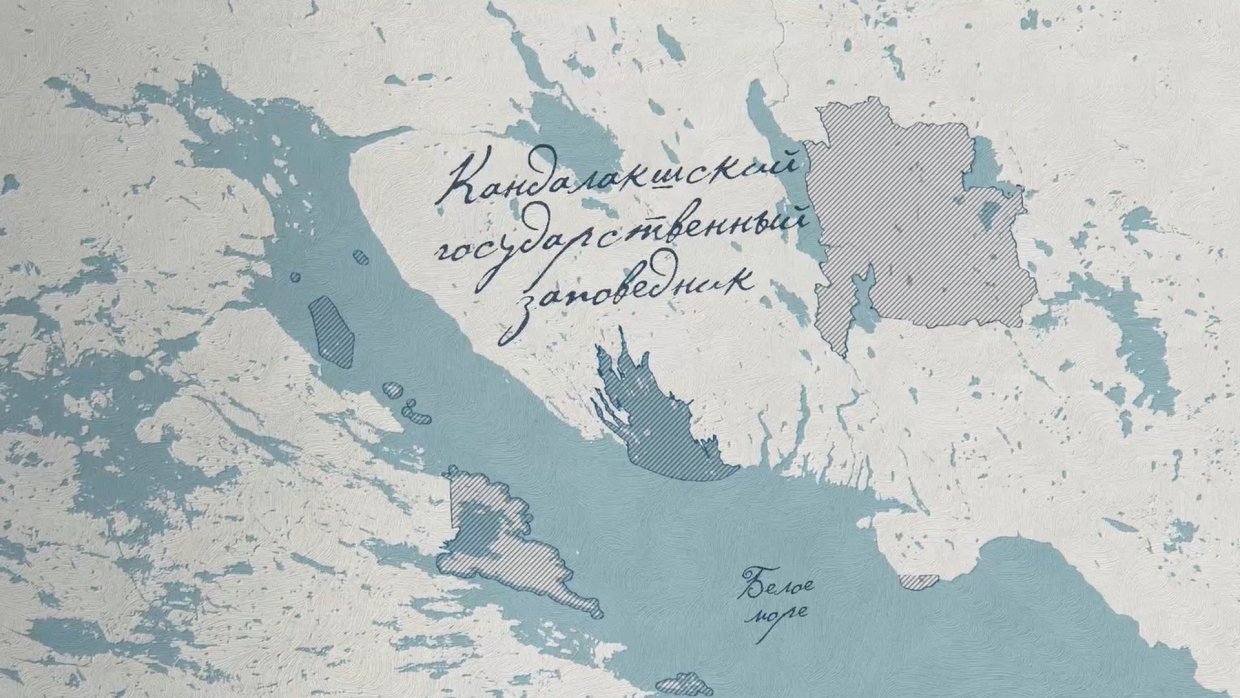 Кандалакшский
государственный
заповедник
Белое
море